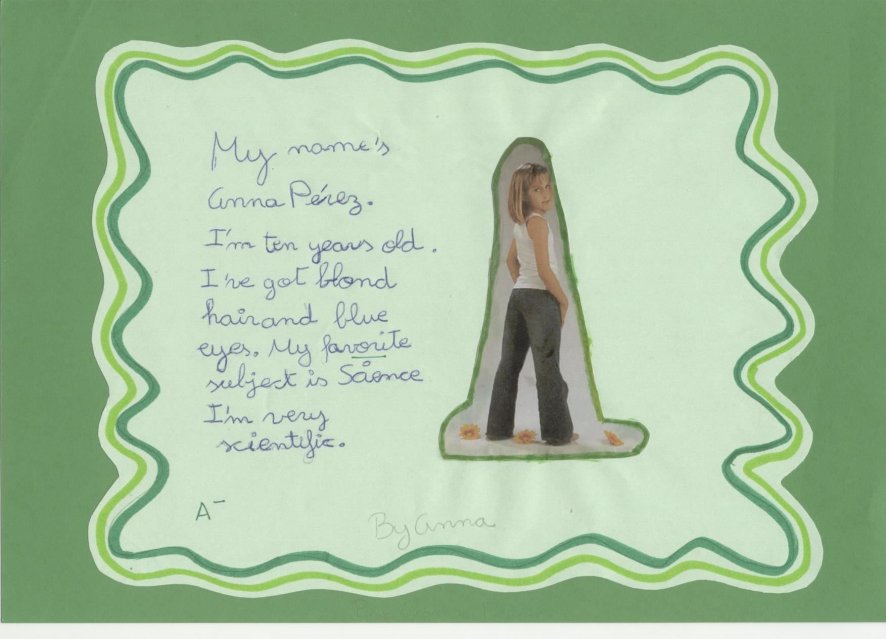 My name's
Anna Pérez.
I'm ten years old.
I've got blond
hair and blue
eyes. My favorite
subject is Science
I'm very
scientific.
A-
By Anna